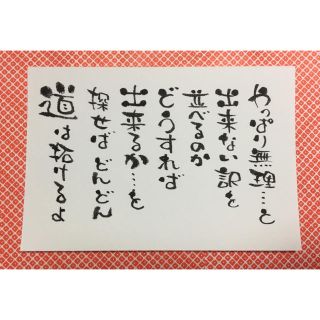 やっぱり無理…と
出来ない訳を
並べるのか
どうすれば
出来るか…を
探せばどんどん
道は拓けるよ